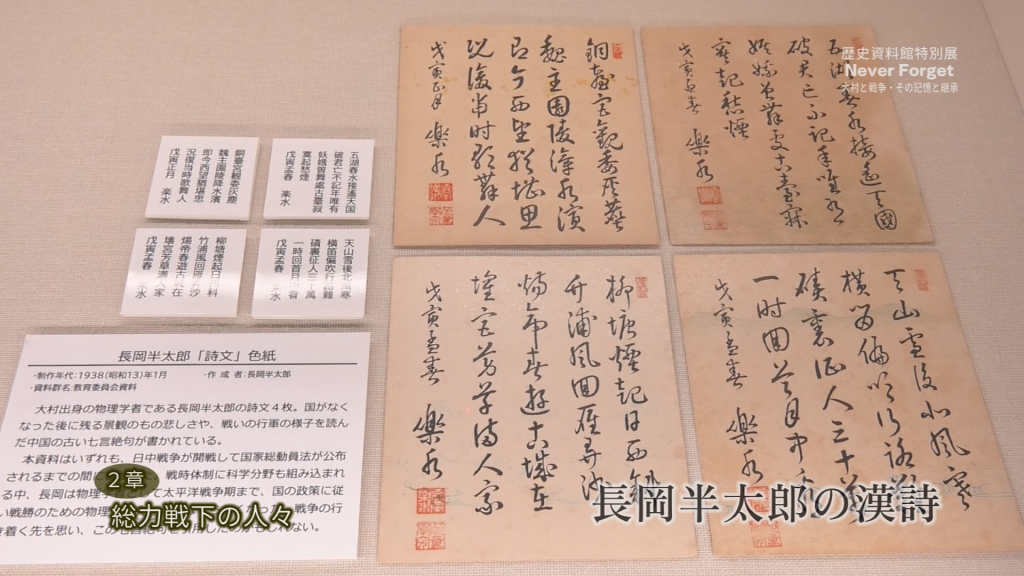 歴史資料館特別展
Never Forget
大村と戦争・その記憶と継承
銅臺宮観委灰塵
魏主園陵降水濱
即今西望猶堪思
況復当時歌舞人
戊寅正月 楽水
五湖春水接遙天国
破君亡不記年唯有
妖娥曽舞處古臺寂
寞起愁煙
戊寅孟春 楽水
柳塘煙起日西斜
竹浦風回雁弄沙
煬帝春遊古城在
壊宮芳草満人家
戊寅孟春 楽水
天山雪後北風寒
横笛偏吹行路難
磧裏征人三十萬
一時回首月中看
戊寅孟春 楽水
銅臺宮観委灰塵
魏主園陵漳水濱
即今西望猶堪思
況復当時歌舞人
戊寅正月 樂水
五湖春水接遙天國
破君亡不記年唯有
妖娥曽舞處古臺寂
寞起愁煙
戊寅孟春 樂水
柳塘煙起日西斜
竹浦風回雁弄沙
煬帝春遊古城在
壊宮芳草満人家
戊寅孟春 樂水
天山雪後北風寒
横笛偏吹行路難
磧裏征人三十萬
一時回首月中看
戊寅孟春 樂水
長岡半太郎「詩文」色紙
・制作年代:1938(昭和13)年1月 ・作 成 者:長岡半太郎
・資料群名:教育委員会資料
大村出身の物理学者である長岡半太郎の詩文4枚。国がなく
なった後に残る景観のもの悲しさや、戦いの行軍の様子を読ん
だ中国の古い七言絶句が書かれている。
本資料はいずれも、日中戦争が開戦して国家総動員法が公布
されるまでの間 戦時体制に科学分野も組み込まれ
る中、長岡は物理学 て太平洋戦争期まで、国の政策に従
い戦勝のための物理 戦争の行
き着く先を思い、この しれない。
2章
総力戦下の人々
長岡半太郎の漢詩